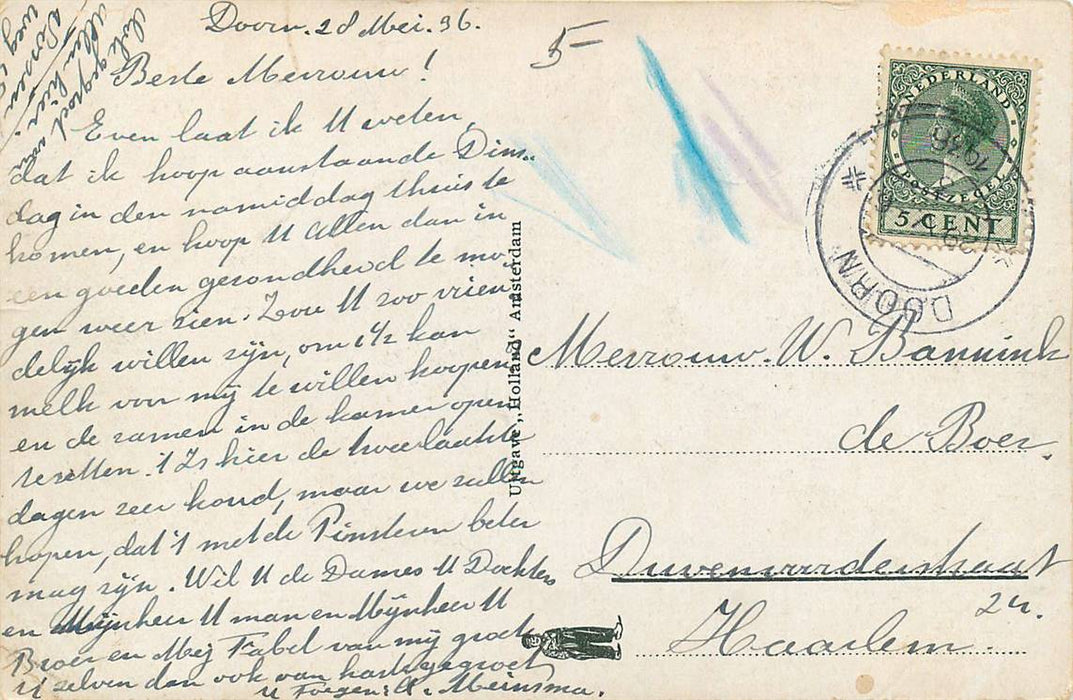 Doorn. 28 Mei. 36.
Beste Mevrouw!
Even laat ik U weten,
dat ik hoop aanstaande Dins-
dag in den namiddag thuis te
komen, en hoop U Allen dan in
een goeden gesondheid te mo-
gen weer zien. Zou U zoo vrien-
delijk willen zijn, om 1 1/2 kan
melk voor mij te willen koopen
en de ramen in de kamer open
te zetten. 't Is hier de twee laatste
dagen zeer koud, maar we zullen
hopen, dat 't met de Pinsteren beter
mag zijn. Wil U de Dames U Dochters
en Mijnheer U man en Mijnheer U
Broer en Mej Fabel van mij groeten
U zelven dan ook van harte gegroet
U Toegen: A. Meinsma.
gegroet van
Allen hier.
5-
NEDERLAND
POSTZEGEL
5 CENT
DOORN
1936
Uitgave „Holland” Amsterdam
Mevrouw. W. Bannink
de Boer.
Duvenvoordestraat
24.
Haarlem.